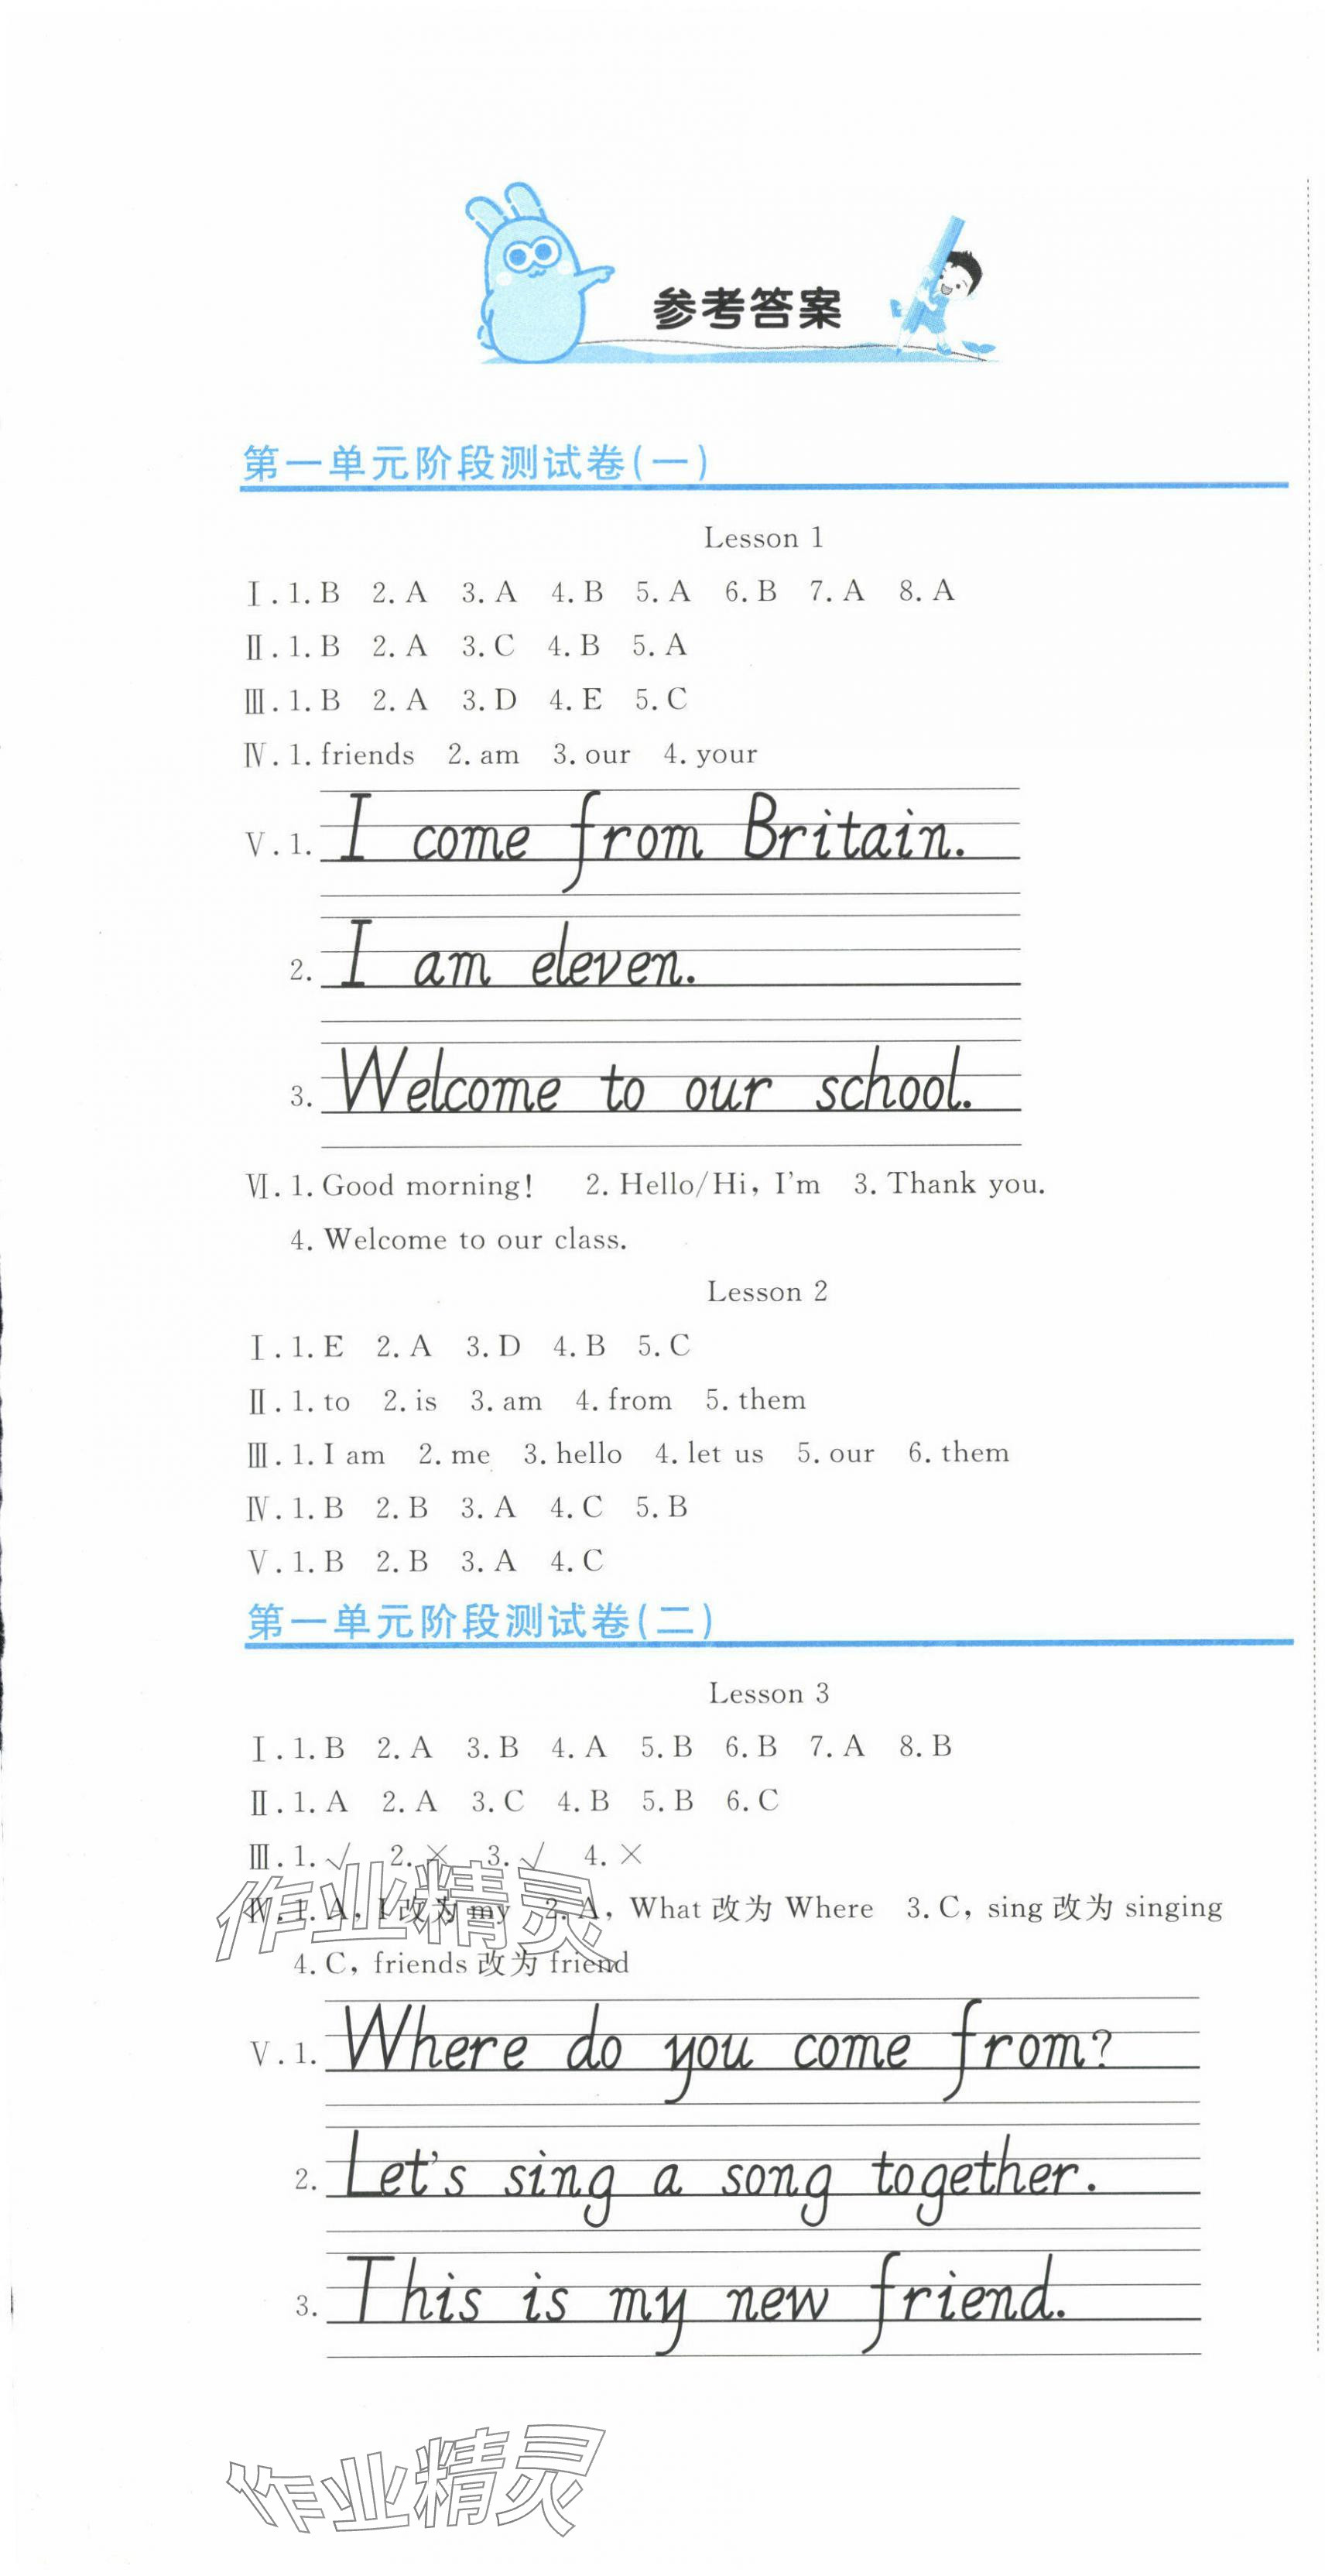 参考答案
第一单元阶段测试卷(一)
Lesson 1
Ⅰ.1.B 2.A 3.A 4.B 5.A 6.B 7.A 8.A
Ⅱ.1.B 2.A 3.C 4.B 5.A
Ⅲ.1.B 2.A 3.D 4.E 5.C
Ⅳ.1.friends 2.am 3.our 4.your
Ⅴ.1. I come from Britain.
2. I am eleven.
3. Welcome to our school.
Ⅵ.1.Good morning! 2.Hello/Hi, I'm 3.Thank you.
4.Welcome to our class.
Lesson 2
Ⅰ.1.E 2.A 3.D 4.B 5.C
Ⅱ.1.to 2.is 3.am 4.from 5.them
Ⅲ.1.I am 2.me 3.hello 4.let us 5.our 6.them
Ⅳ.1.B 2.B 3.A 4.C 5.B
Ⅴ.1.B 2.B 3.A 4.C
第一单元阶段测试卷(二)
Lesson 3
Ⅰ.1.B 2.A 3.B 4.A 5.B 6.B 7.A 8.B
Ⅱ.1.A 2.A 3.C 4.B 5.B 6.C
Ⅲ.1.√ 2.× 3.√ 4.×
Ⅳ.1.A, I改为my 2.A, What改为Where 3.C, sing改为singing
4.C, friends改为friend
作业精灵
Ⅴ.1. Where do you come from?
2. Let's sing a song together.
3. This is my new friend.
作业精灵